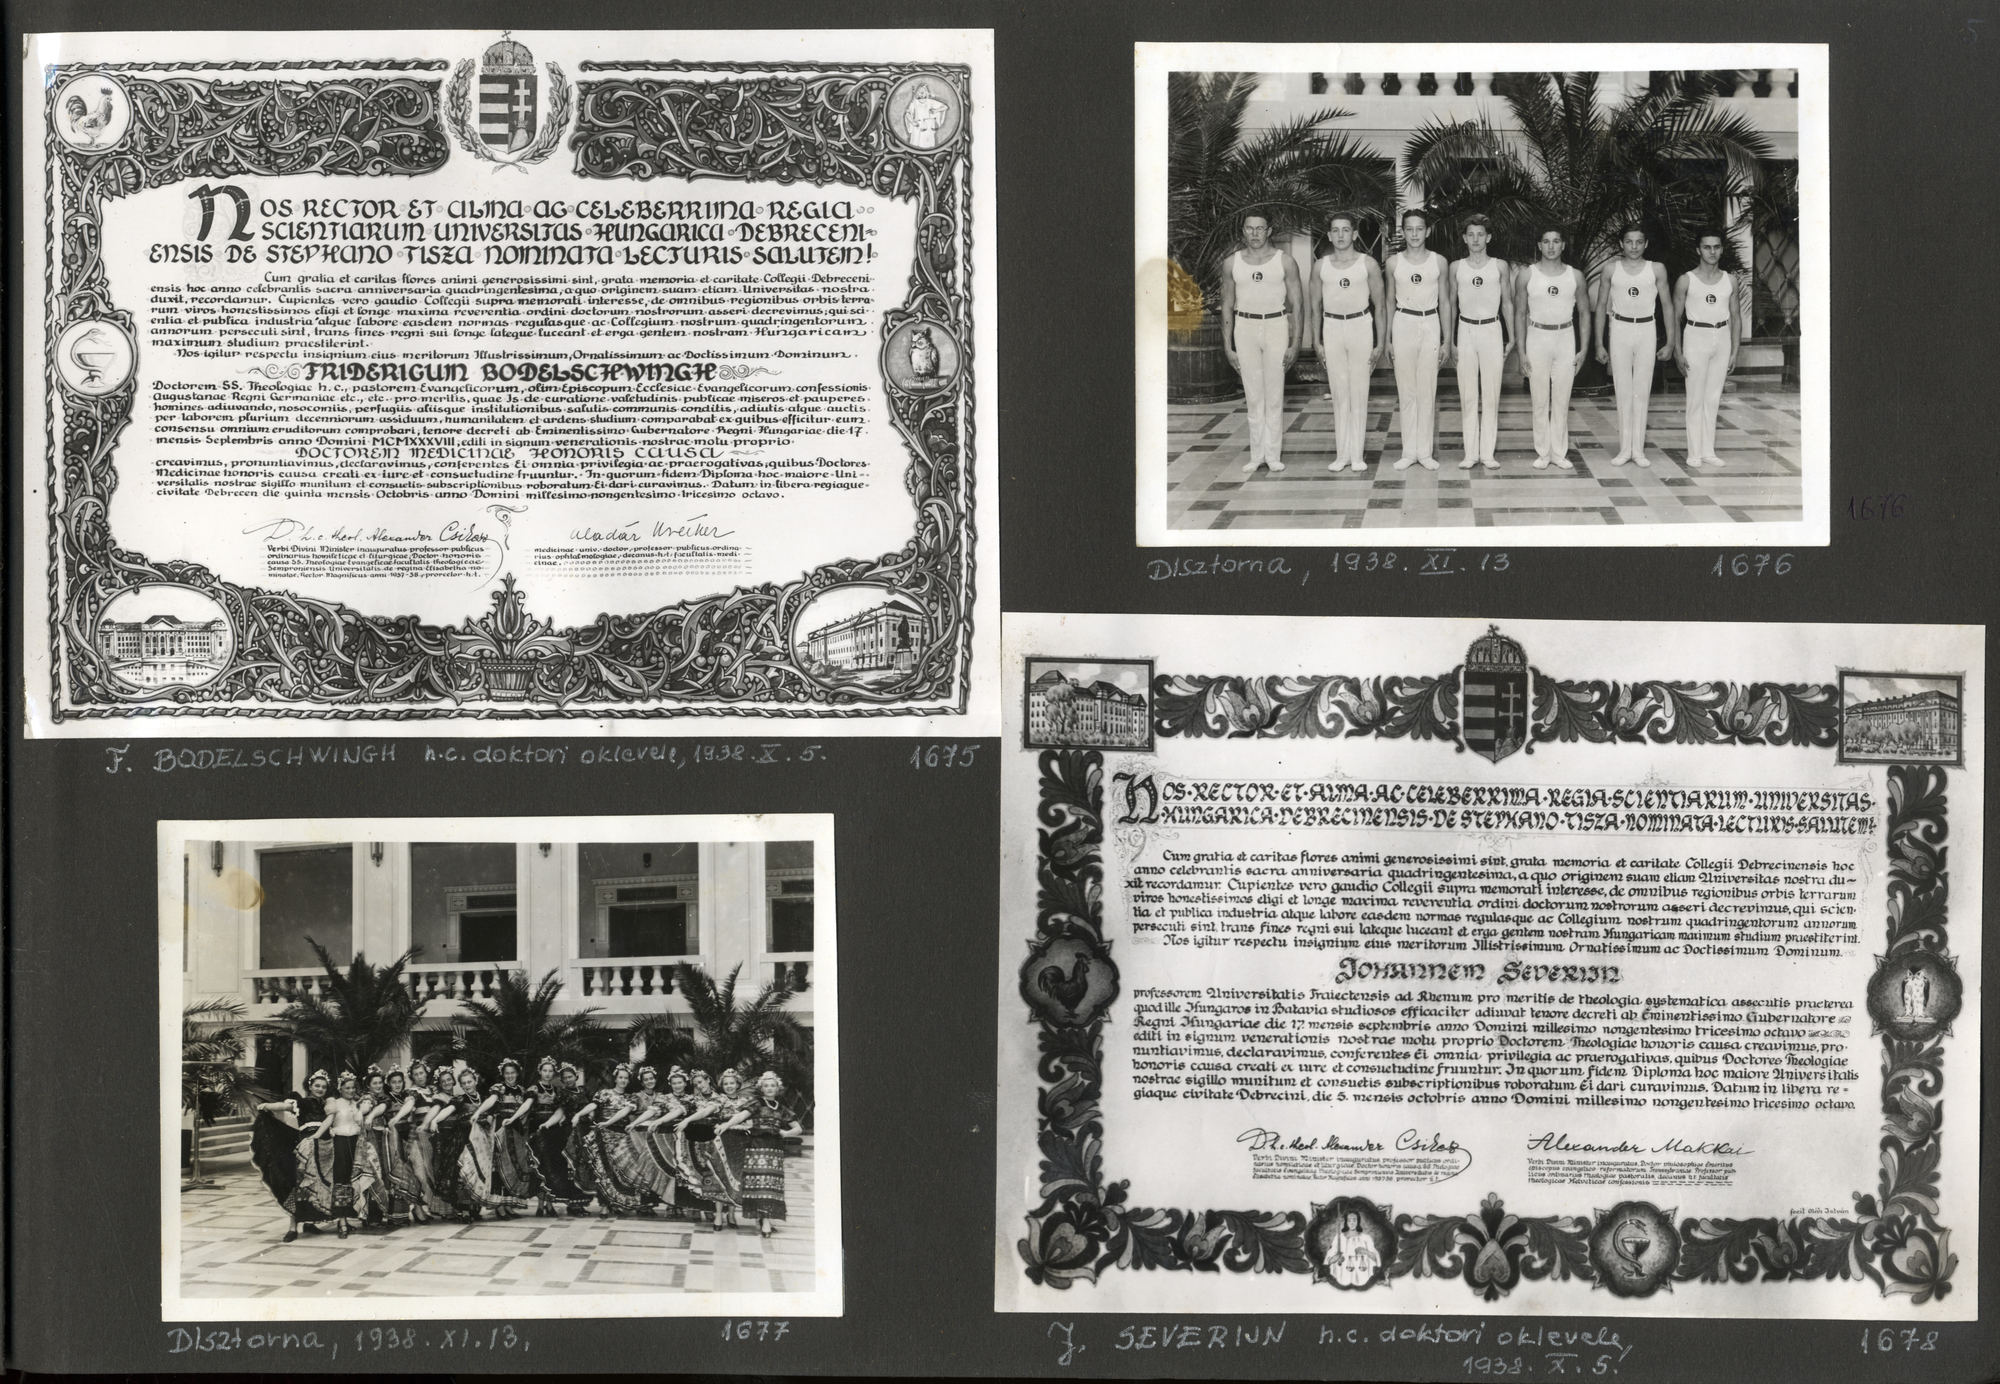 NOS RECTOR ET ALMA AC CELEBERRIMA REGIA
SCIENTIARUM UNIVERSITAS HUNGARICA DEBRECENI-
ENSIS DE STEPHANO TISZA NOMINATA LECTURIS SALUTEM!
Cum gratia et caritas flores animi generosissimi sint, grata memoria et caritate Collegii Debreceni-
ensis hoc anno celebrantis sacra anniversaria quadringentesima, a quo originem suam etiam Universitas nostra
duxit, recordamur. Cupientes vero gaudio Collegii supra memorati interesse, de omnibus regionibus orbis terra-
rum viros honestissimos eligi et longe maxima reverentia ordini doctorum nostrorum asseri decrevimus; qui sci-
entia et publica industria atque labore easdem normas regulasque ac Collegium nostrum quadringentorum
annorum persecuti sint, trans fines regni sui longe lateque luceant et erga gentem nostram Hungaricam
maximum studium praestiterint.
Nos igitur respectu insignium eius meritorum Illustrissimum, Ornatissimum ac Doctissimum Dominum
FRIDERIGUM BODELSCHWINGH
Doctorem SS. Theologiae h.c., pastorem Evangelicorum, olim Episcopum Ecclesiae Evangelicorum confessionis
Augustanae Regni Germaniae etc., etc. pro meritis, quae Is de curatione valetudinis publicae miseros et pauperes
homines adiuvando, nosocomiis, perfugiis aliisque institutionibus salutis communis conditis, adiutis atque auctis
per laborem plurium decenniorum assiduum, humanitatem et ardens studium comparabat ex quibus efficitur eum
consensu omnium eruditorum comprobari, tenore decreti ab Eminentissimo Gubernatore Regni Hungariae die 17
mensis Septembris anno Domini MCMXXXVIII, editi in signum venerationis nostrae motu proprio
DOCTOREM MEDICINAE HONORIS CAUSA
creavimus, pronuntiavimus, declaravimus, conferentes Ei omnia privilegia ac praerogativas, quibus Doctores
Medicinae honoris causa creati ex iure et consuetudine fruuntur. In quorum fidem Diploma hoc maiore Uni-
versitatis nostrae sigillo munitum et consuetis subscriptionibus roboratum Ei dari curavimus. Datum in libera regiaque
civitate Debrecen die quinta mensis Octobris anno Domini millesimo nongentesimo tricesimo octavo.
D. h. c. theol. Alexander Csikesz
Verbi Divini Minister inauguratus professor publicus
ordinarius homileticae et liturgicae, Doctor honoris
causa SS. Theologiae Evangelicae facultatis theologicae
Semproniensis Universitatis de regina Elisabetha no-
minatae, Rector Magnificus anni 1937-38, prorector h.t.
Aladár Kreiker
medicinae univ. doctor, professor publicus ordina-
rius ophtalmologiae, decanus h.t. facultatis medi-
cinae.
F. BODELSCHWINGH h.c. doktori oklevele, 1938. X. 5. 1675
1676
Dísztorna, 1938. XI. 13 1676
Dísztorna, 1938. XI. 13. 1677
NOS RECTOR ET ALMA AC CELEBERRIMA REGIA SCIENTIARUM UNIVERSITAS
HUNGARICA DEBRECINENSIS DE STEPHANO TISZA NOMINATA LECTURIS SALUTEM!
Cum gratia et caritas flores animi generosissimi sint, grata memoria et caritate Collegii Debrecinensis hoc
anno celebrantis sacra anniversaria quadringentesima, a quo originem suam etiam Universitas nostra du-
xit recordamur. Cupientes vero gaudio Collegii supra memorati interesse, de omnibus regionibus orbis terrarum
viros honestissimos eligi et longe maxima reverentia ordini doctorum nostrorum asseri decrevimus, qui scien-
tia et publica industria atque labore easdem normas regulasque ac Collegium nostrum quadringentorum annorum
persecuti sint, trans fines regni sui lateque luceant et erga gentem nostram Hungaricam maximum studium praestiterint.
Nos igitur respectu insignium eius meritorum Illistrissimum Ornatissimum ac Doctissimum Dominum
JOHANNEM SEVERIJN
professorem Universitatis Traiectensis ad Rhenum pro meritis de theologia systematica assecutis praeterea
quod ille Hungaros in Batavia studiosos efficaciter adiuvat tenore decreti ab Eminentissimo Gubernatore
Regni Hungariae die 17. mensis septembris anno Domini millesimo nongentesimo tricesimo octavo
editi in signum venerationis nostrae motu proprio Doctorem Theologiae honoris causa creavimus, pro-
nuntiavimus, declaravimus, conferentes Ei omnia privilegia ac praerogativas, quibus Doctores Theologiae
honoris causa creati ex iure et consuetudine fruuntur. In quorum fidem Diploma hoc maiore Universitatis
nostrae sigillo munitum et consuetis subscriptionibus roboratum Ei dari curavimus. Datum in libera re-
giaque civitate Debrecini, die 5. mensis octobris anno Domini millesimo nongentesimo tricesimo octavo.
D. h. c. theol. Alexander Csikesz
Verbi Divini Minister inauguratus professor publicus ordi-
narius homileticae et liturgicae, Doctor honoris causa SS. Theologiae
facultatis Evangelicae Theologicae Semproniensis Universitatis de regina
Elisabetha nominatae, Rector Magnificus anni 1937-38, prorector h.t.
Alexander Makkai
Verbi Divini Minister inauguratus, Doctor philosophiae Emeritus
episcopus evangelico reformatorum Transylvaniae Professor pub-
licus ordinarius theologiae pastoralis, decanus h.t. facultatis
theologicae Helveticae confessionis
fecit Oláh István
J. SEVERIJN h.c. doktori oklevele, 1678
1938. X. 5.